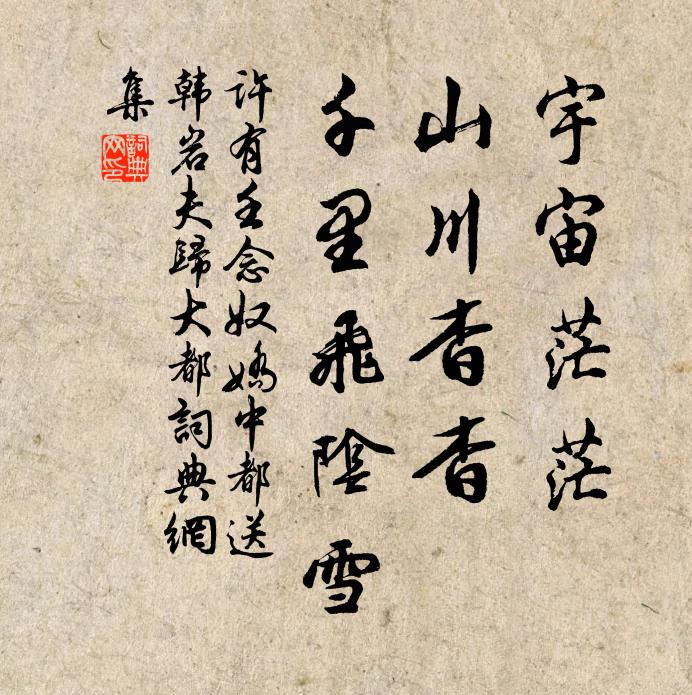 宇宙茫茫
山川杳杳
千里飛陰雪
許有壬念奴嬌中都送
韓岩夫歸大都詞典網
集
詞典網印